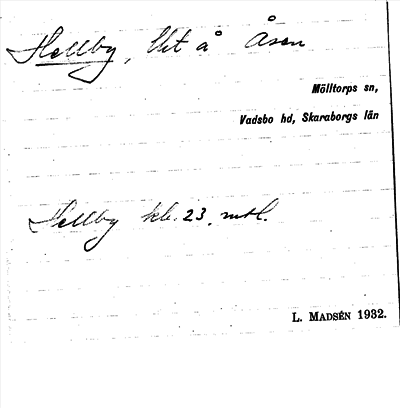 Hellby, lht å Åsen
Mölltorps sn,
Vadsbo hd, Skaraborgs län
Hellby kb. 23. mtl.
L. MADSÉN 1932.